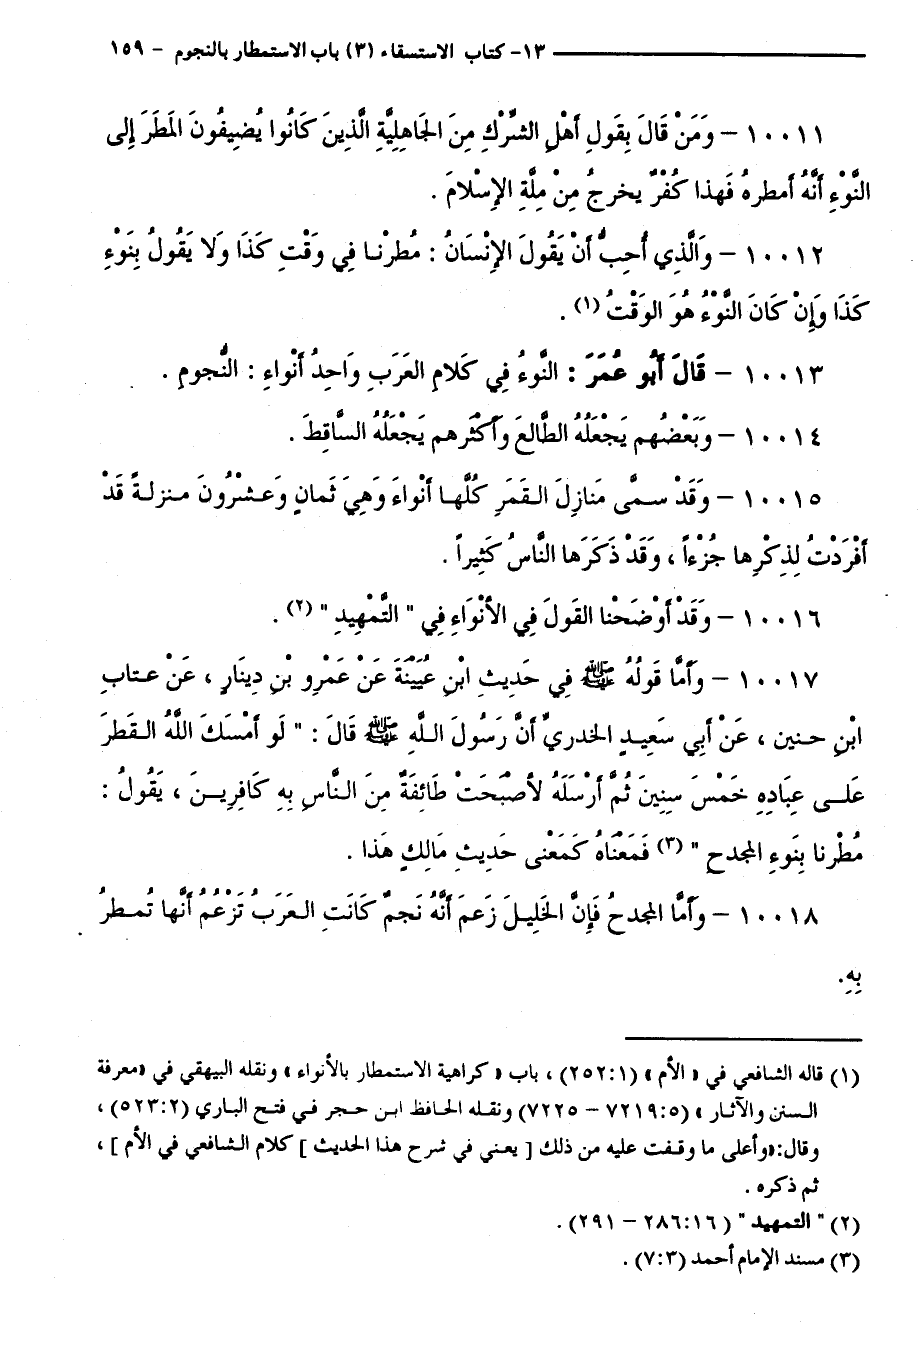 ١٣- كتاب الاستسقاء (٣) باب الاستمطار بالنجوم - ١٥٩
١٠٠١١ - وَمَنْ قَالَ بِقَولِ أَهْلِ الشِّرْكِ مِنَ الجَاهِلِيَّةِ الَّذِينَ كَانُوا يُضِيفُونَ المَطَرَ إِلى
النَّوْءِ أَنَّهُ أَمطرهُ فَهذا كُفْرٌ يخرجُ مِنْ مِلَّةِ الإِسْلامَ .
١٠٠١٢ - وَالَّذِي أُحِبُّ أَنْ يَقُولَ الإِنْسَانُ : مُطرْنـا فِي وَقْتِ كَذَا وَلا يَقُولُ بِنَوْءِ
كَذَا وَإِنْ كَانَ النَّوْءُ هُوَ الوَقْتُ (١) .
١٠٠١٣ - قَالَ أَبُو عُمَرَ : النَّوءُ فِي كَلامِ العَرَبِ وَاحِدُ أَنْواءِ : النُّجومِ .
١٠٠١٤ - وَبَعْضُهم يَجْعَلُهُ الطَّالِعَ وَأَكْثَرهم يَجْعَلُهُ السَّاقِطَ .
١٠٠١٥ - وَقَدْ سـمَّى مَنَازِلَ الـقَمَرِ كُلَّهـا أَنْواءَ وَهِيَ ثَمانٍ وَعـشْرُونَ مـنزلـةً قَدْ
أَفْرَدْتُ لِذِكْرِها جُزْءاً ، وَقَدْ ذَكَرَها النَّاسُ كَثِيراً .
١٠٠١٦ - وَقَدْ أَوْضَحْنا القَولَ فِي الأَنْوَاءِ فِي " التَّمْهِيدِ " (٢) .
١٠٠١٧ - وَأَمَّا قَولُهُ ﷺ فِي حَدِيثِ ابْنِ عُيَيْنَةَ عَنْ عَمْرِو بْنِ دِينَارٍ ، عَنْ عـتابِ
ابْنِ حـنين ، عَنْ أَبِي سَعِيـدٍ الخدريِّ أَنَّ رَسُولَ الـلَّهِ ﷺ قَالَ : " لَو أَمْسَكَ اللَّهُ الـقَطرَ
عَلـى عِبَادِهِ خَمْسَ سِنِينَ ثُمَّ أَرْسَلَهُ لأَصْبَحَتْ طَائِفَةٌ مِنَ الـنَّاسِ بِهِ كَافِرِيـنَ ، يَقُولُ :
مُطْرنا بِنَوءِ المجدح " (٣) فَمَعْنَاهُ كَمَعْنى حَدِيثِ مَالِكٍ هَذا .
١٠٠١٨ - وَأَمَّا المجدحُ فَإِنَّ الخَلِيلَ زَعمَ أَنَّهُ نَجمٌ كَانَتِ الـعَرَبُ تَزْعُمُ أَنَّها تُمـطرُ
بِهِ.
(١) قاله الشافعي في « الأم » (٢٥٢:١) ، باب « كراهية الاستمطار بالأنواء » ونقله البيهقي في «معرفة
السنن والآثار » (٧٢١٩:٥ - ٧٢٢٥) ونقـله الحافظ ابـن حـجر فـي فتـح الباري (٥٢٣:٢) ،
وقال:«وأعلى ما وقـفت عليه من ذلك [ يعني في شرح هذا الحديث ] كلام الشافعي في الأم ] ،
ثم ذكره .
(٢) " التمهيد " (٢٨٦:١٦ - ٢٩١) .
(٣) مسند الإمام أحمد (٧:٣) .